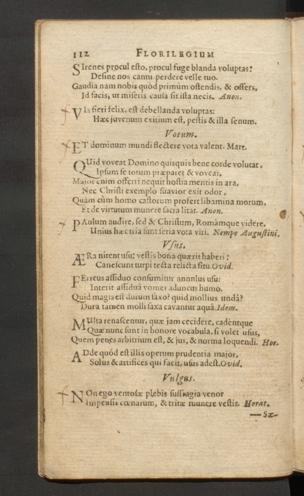 112 FLORILEGIUM
Sirenes procul esto, procul fuge blanda voluptas:
Desine nos cantu perdere velle tuo.
Gaudia nam nobis quòd primùm ostendis, & offers,
Id facis, ut miseris causa sit ista necis. Anon.
Vis fieri felix, est debellanda voluptas:
Hæc juvenum exitium est, pestis & illa senum.
Votum.
ET dominum mundi flectere vota valent. Mart.
Quid voveat Domino quisquis bene corde volutat,
Ipsum se totum præparet & voveat.
Major enim offerri nequit hostia mentis in ara,
Nec Christi exemplo suavior exit odor:
Quàm cùm homo castorum profert libamina morum,
Et de virtutum munere sacra litat. Anon.
Paulum audire, sed & Christum, Romámque videre,
Unius hæc tria sunt seria vota viri. Nempe Augustini.
Usus.
ÆRa nitent usu: vestis bona quærit haberi:
Canescunt turpi tecta relicta situ. Ovid.
Ferreus assiduo consumitur annulus usu:
Interit assiduâ vomer aduncus humo.
Quid magis est durum saxo? quid mollius undâ?
Dura tamen molli saxa cavantur aquâ. Idem.
Multa renascentur, quæ jam cecidere, cadentque
Quæ nunc sunt in honore vocabula, si volet usus,
Quem penes arbitrium est, & jus, & norma loquendi. Hor.
ADde quòd est illis operum prudentia major,
Solus & artifices qui facit, usus adest. Ovid.
Vulgus.
NOn ego ventosæ plebis suffragia venor
Impensis cœnarum, & tritæ munere vestis. Horat.